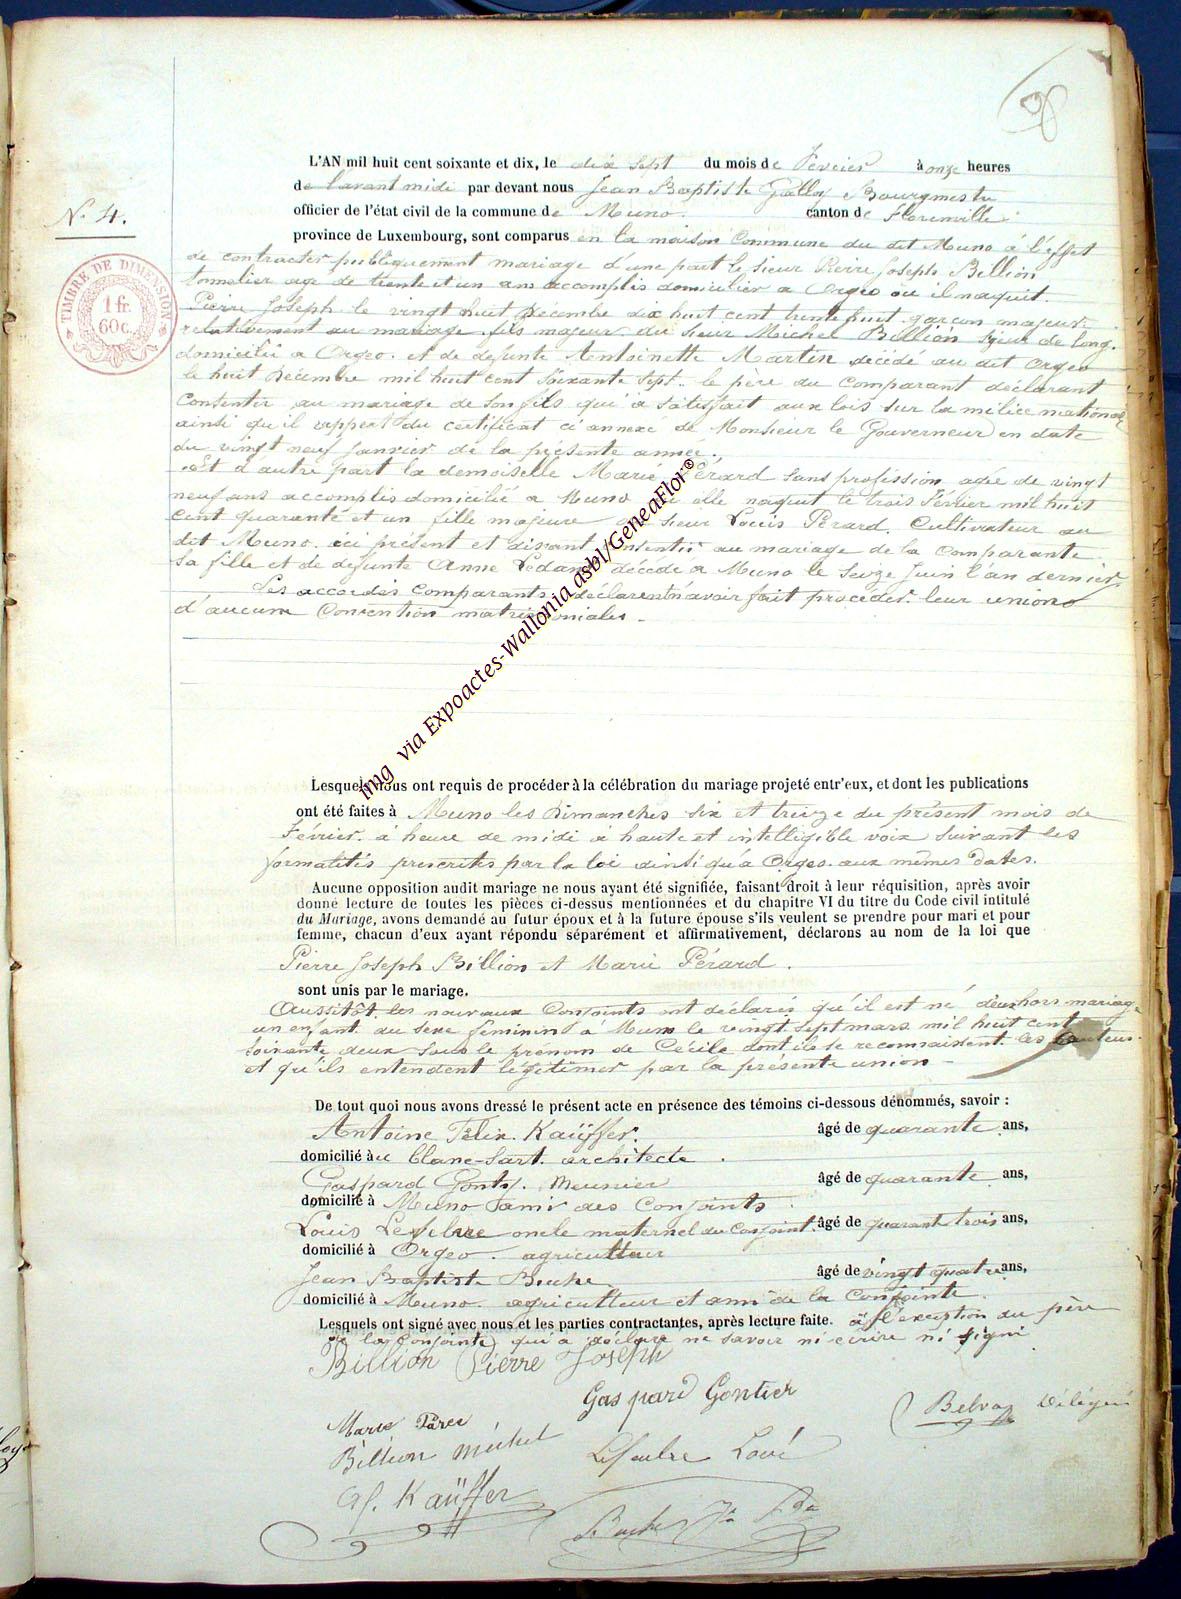 98
L'AN mil huit cent soixante et dix, le dix sept du mois de Fevrier à onze heures
de l'avant midi par devant nous Jean Baptiste Bourgmestre
officier de l'état civil de la commune de Muno. canton de Florenville.
N. 4.
province de Luxembourg, sont comparus en la maison Commune du dit Muno à l'effet
de contracter publiquement mariage d'une part le sieur Pierre Joseph Billion
tonnelier age de trente et un ans accomplis domicilier a Orgeo ou il naquit
TIMBRE DE DIMENSION
1 fr.
60 c.
Pierre Joseph le vingt huit Decembre dix huit cent trente huit garcon majeur
relativement au mariage fils majeur du sieur Michel Billion Sieur de long.
domicilié a Orgeo. et de defunte Antoinette Martin décédé au dit Orgeo
le huit Décembre mil huit cent soixante sept. le père du Comparant déclarant
Consentir au mariage de son fils qui a satisfait aux lois sur la milice nationale
ainsi qu'il rappert du certificat ci annexe de Monsieur le Gouverneur en date
du vingt neuf Janvier de la présente année.
Et d'autre part la demoiselle Marie Pérard sans profession agée de vingt
neuf ans accomplis domicilié a Muno elle naquit le trois Février mil huit
cent quarante et un fille majeure sieur Louis Pérard. Cultivateur au
dit Muno. ici présent et disant consentir au mariage de la Comparante
sa fille et de defunte Anne décédé a Muno le Seize Juin l'an dernier,
Les accordés Comparants déclarent n'avoir fait procéder leur union
d'aucune Convention matrimoniales.
img via Expoactes-Wallonia asbl/GeneaFlor®
Lesquels nous ont requis de procéder à la célébration du mariage projeté entr'eux, et dont les publications
ont été faites à Muno les Dimanches six et treize du présent mois de
Février. à heure de midi à haute et intelligible voix suivant les
formalités prescrites par la loi ainsi qu'à Orgeo. aux mêmes Dates.
Aucune opposition audit mariage ne nous ayant été signifiée, faisant droit à leur réquisition, après avoir
donné lecture de toutes les pièces ci-dessus mentionnées et du chapitre VI du titre du Code civil intitulé
du Mariage, avons demandé au futur époux et à la future épouse s'ils veulent se prendre pour mari et pour
femme, chacun d'eux ayant répondu séparément et affirmativement, déclarons au nom de la loi que
Pierre Joseph Billion et Marie Pérard.
sont unis par le mariage.
Aussitôt les nouveaux Conjoints ont déclarés qu'il est né d'eux hors mariage
un enfant du sexe féminin a Muno le vingt sept mars mil huit cent
soixante deux sous le prénom de Cécile dont ils se reconnaissent les auteurs.
et qu'ils entendent légitimer par la présente union
De tout quoi nous avons dressé le présent acte en présence des témoins ci-dessous dénommés, savoir :
Antoine Félix Kaüffer. âgé de quarante ans,
domicilié au blanc-Sart. architecte.
Gaspard Meunier âgé de quarante ans,
domicilié à Muno ami des Conjoints.
Louis Lefebvre oncle maternel du Conjoint. âgé de quarant trois ans,
domicilié à Orgeo. agriculteur
Jean Baptiste âgé de vingt quatre ans,
domicilié à Muno. agriculteur et ami de la Conjointe.
Lesquels ont signé avec nous et les parties contractantes, après lecture faite. a l'exception du père
de la Conjointe qui a déclaré ne savoir ni écrire ni signé
Billion Pierre Joseph
Gaspard Gontier
Marie
Billion Michel
af. Kaüffer